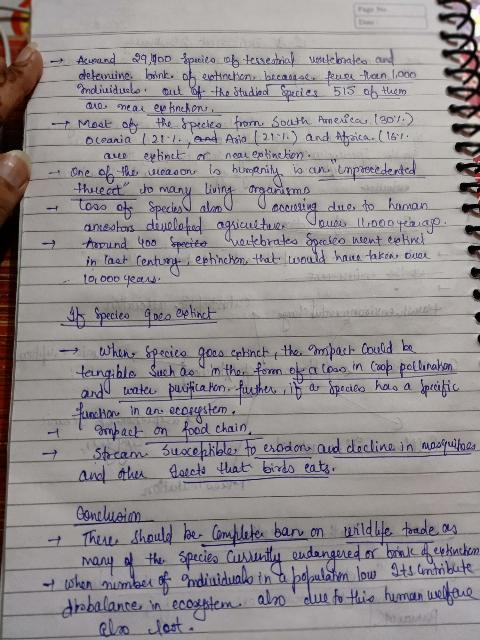 Page No.
Date:
→ Around 29,400 species of terrestrial vertebrates and
determine brink of extinction because fewer than 1,000
individuals. out of the studied species 515 of them
are near extinction.
→ Most of the species from South America (30%)
Oceania (21%, and Asia (21%) and Africa (16%
are extinct or near extinction.
→ One of the reason is humanity is an "unprecedented
threat" to many living organisms
→ Loss of species also occuring due to human
ancestors developed agriculture over 11,000 years ago.
→ Around 400 species vertebrates species went extinct
in last century, extinction that would have taken over
10,000 years.
If species goes extinct
→ When species goes extinct, the impact could be
tangible such as in the form of a loss in crop pollination
and water purification. further, if a species has a specific
function in an ecosystem.
→ Impact on food chain.
→ Stream susceptible to erosion and decline in mosquitoes
and other that birds eats.
Conclusion
→ There should be complete ban on wildlife trade as
many of the species currently endangered or brink of extinction
→ When number of individuals in a population low Its contribute
in ecosystem. also due to this human welfare
also lost.